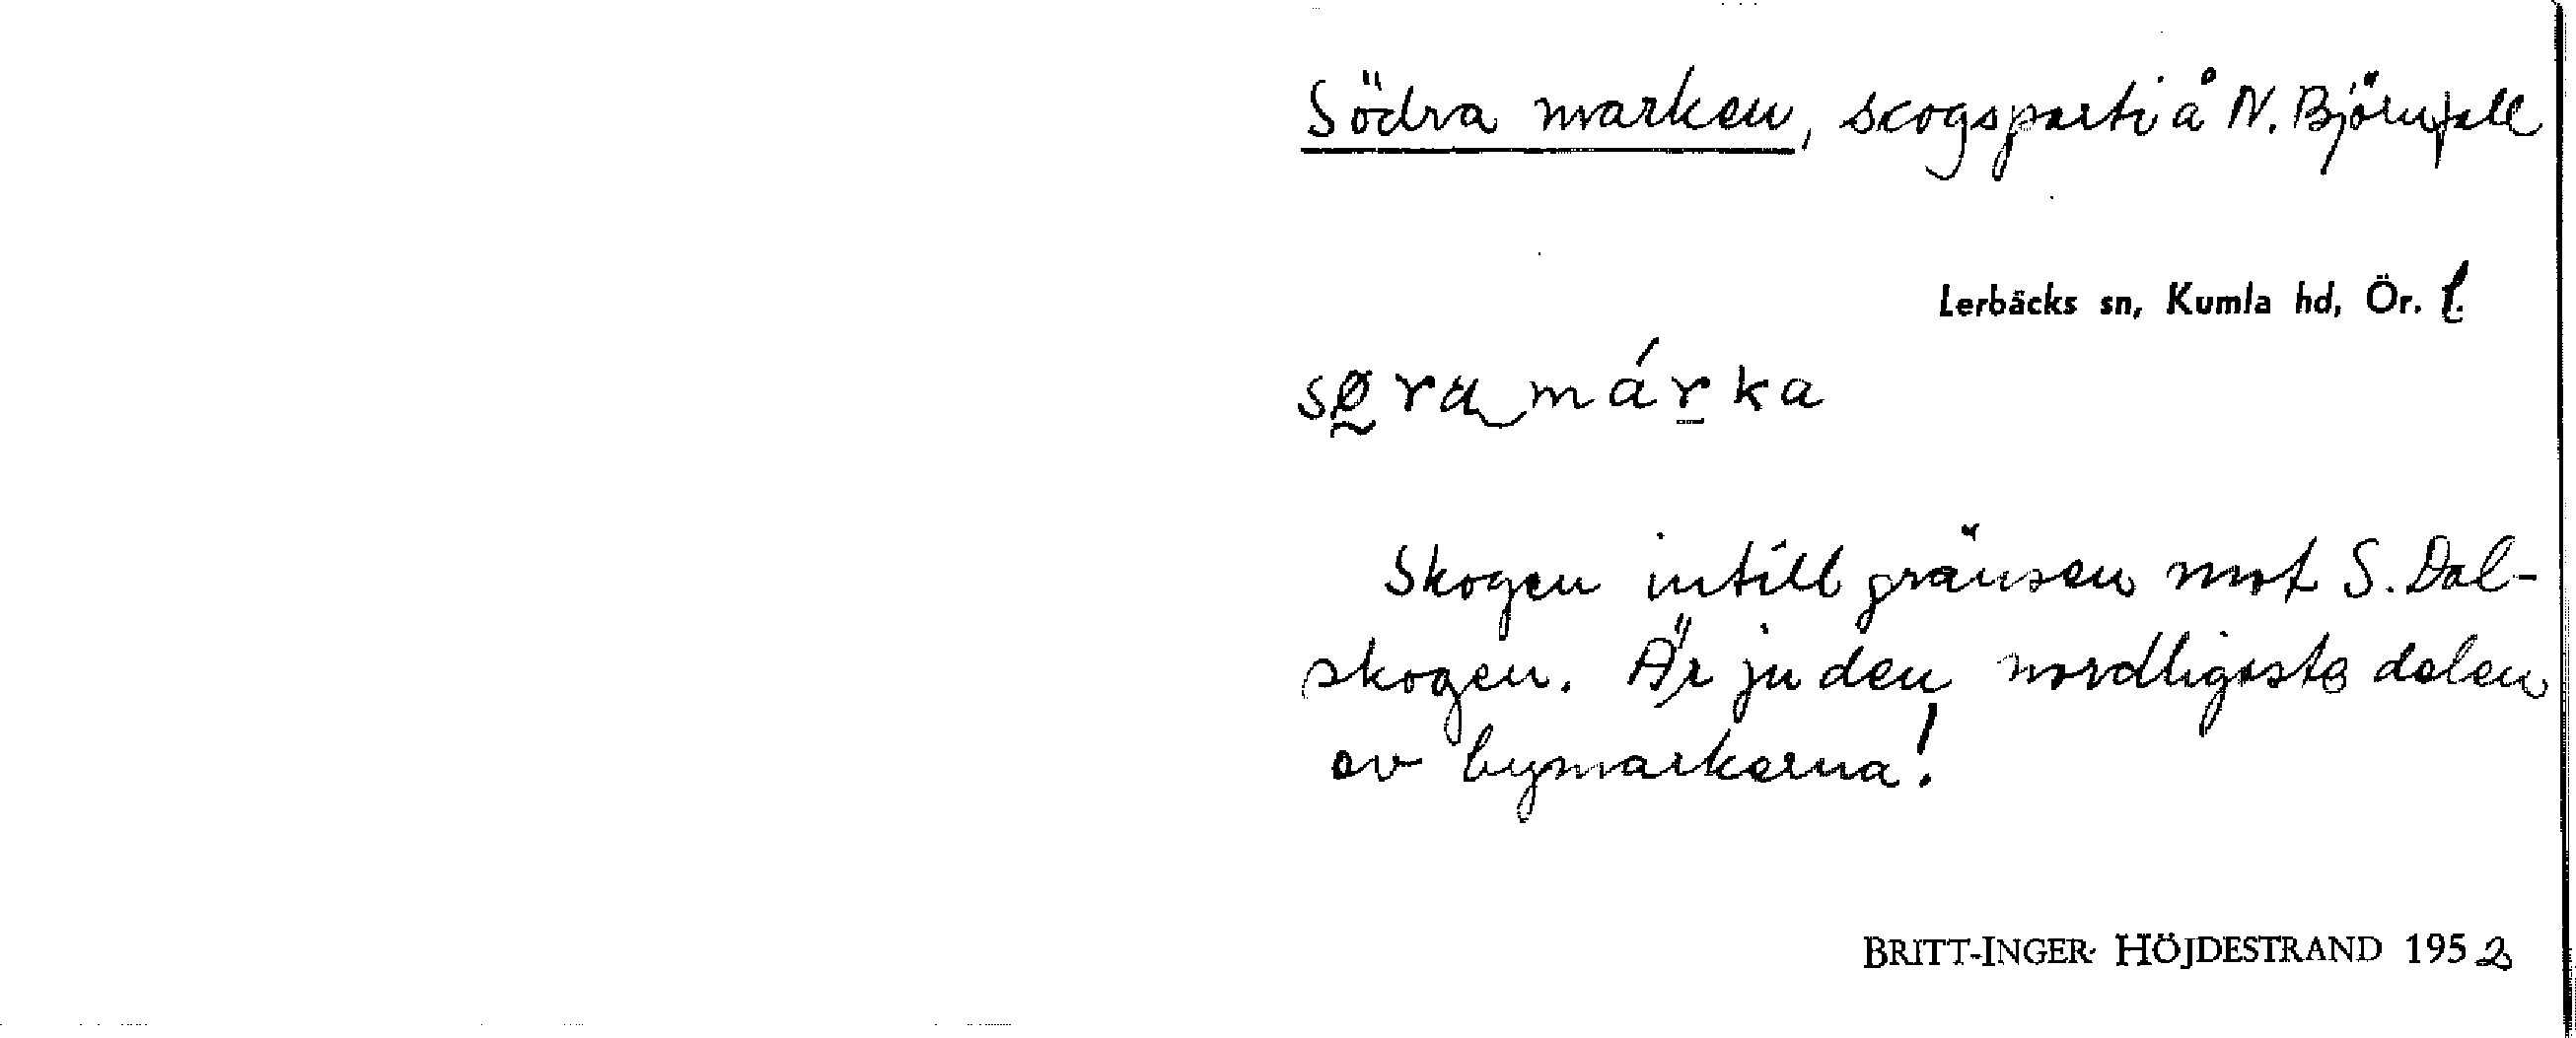 Södra marken, skogsparti å N. Björnfall
Lerbäcks sn, Kumla hd, Ör. l.
sø̰ra‿márka
Skogen intill gränsen mot S. Dal-
skogen. Är ju den nordligaste delen
av bymarkerna!
BRITT-INGER HÖJDESTRAND 1952